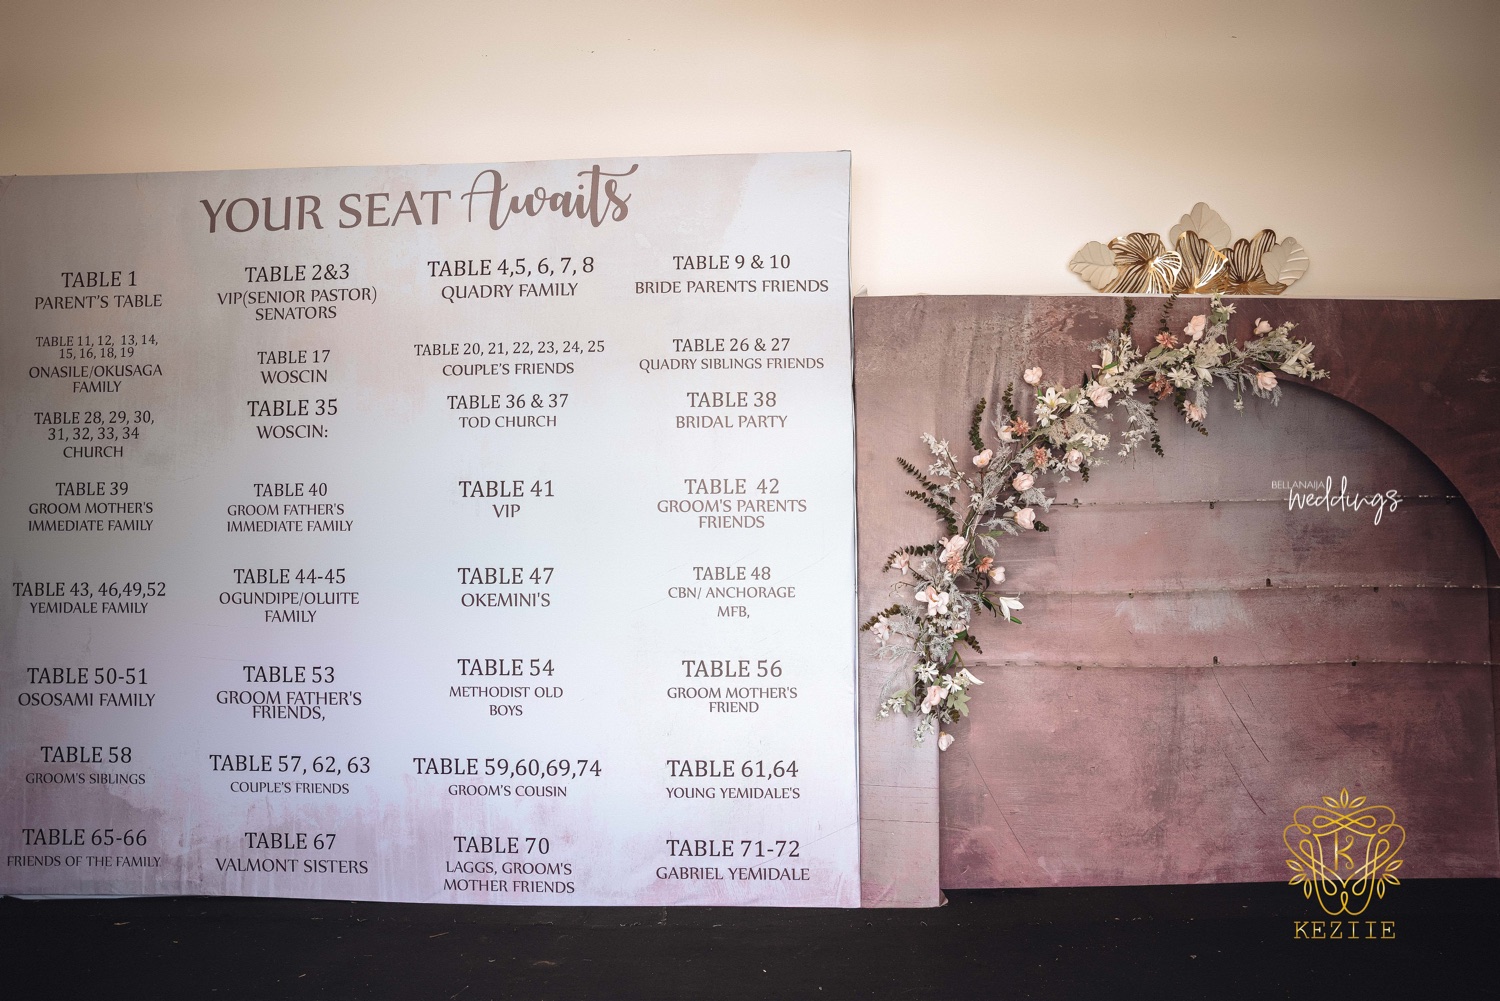 YOUR SEAT Awaits
TABLE 1
PARENT'S TABLE
TABLE 2&3
VIP(SENIOR PASTOR)
SENATORS
TABLE 4,5, 6, 7, 8
QUADRY FAMILY
TABLE 9 & 10
BRIDE PARENTS FRIENDS
TABLE 11, 12, 13, 14,
15, 16, 18, 19
ONASILE/OKUSAGA
FAMILY
TABLE 17
WOSCIN
TABLE 20, 21, 22, 23, 24, 25
COUPLE'S FRIENDS
TABLE 26 & 27
QUADRY SIBLINGS FRIENDS
TABLE 28, 29, 30,
31, 32, 33, 34
CHURCH
TABLE 35
WOSCIN:
TABLE 36 & 37
TOD CHURCH
TABLE 38
BRIDAL PARTY
TABLE 39
GROOM MOTHER'S
IMMEDIATE FAMILY
TABLE 40
GROOM FATHER'S
IMMEDIATE FAMILY
TABLE 41
VIP
TABLE 42
GROOM'S PARENTS
FRIENDS
TABLE 43, 46,49,52
YEMIDALE FAMILY
TABLE 44-45
OGUNDIPE/OLUITE
FAMILY
TABLE 47
OKEMINI'S
TABLE 48
CBN/ ANCHORAGE
MFB,
TABLE 50-51
OSOSAMI FAMILY
TABLE 53
GROOM FATHER'S
FRIENDS,
TABLE 54
METHODIST OLD
BOYS
TABLE 56
GROOM MOTHER'S
FRIEND
TABLE 58
GROOM'S SIBLINGS
TABLE 57, 62, 63
COUPLE'S FRIENDS
TABLE 59,60,69,74
GROOM'S COUSIN
TABLE 61,64
YOUNG YEMIDALE'S
TABLE 65-66
FRIENDS OF THE FAMILY
TABLE 67
VALMONT SISTERS
TABLE 70
LAGGS, GROOM'S
MOTHER FRIENDS
TABLE 71-72
GABRIEL YEMIDALE
BELLANAIJA
weddings
K
KEZIIE